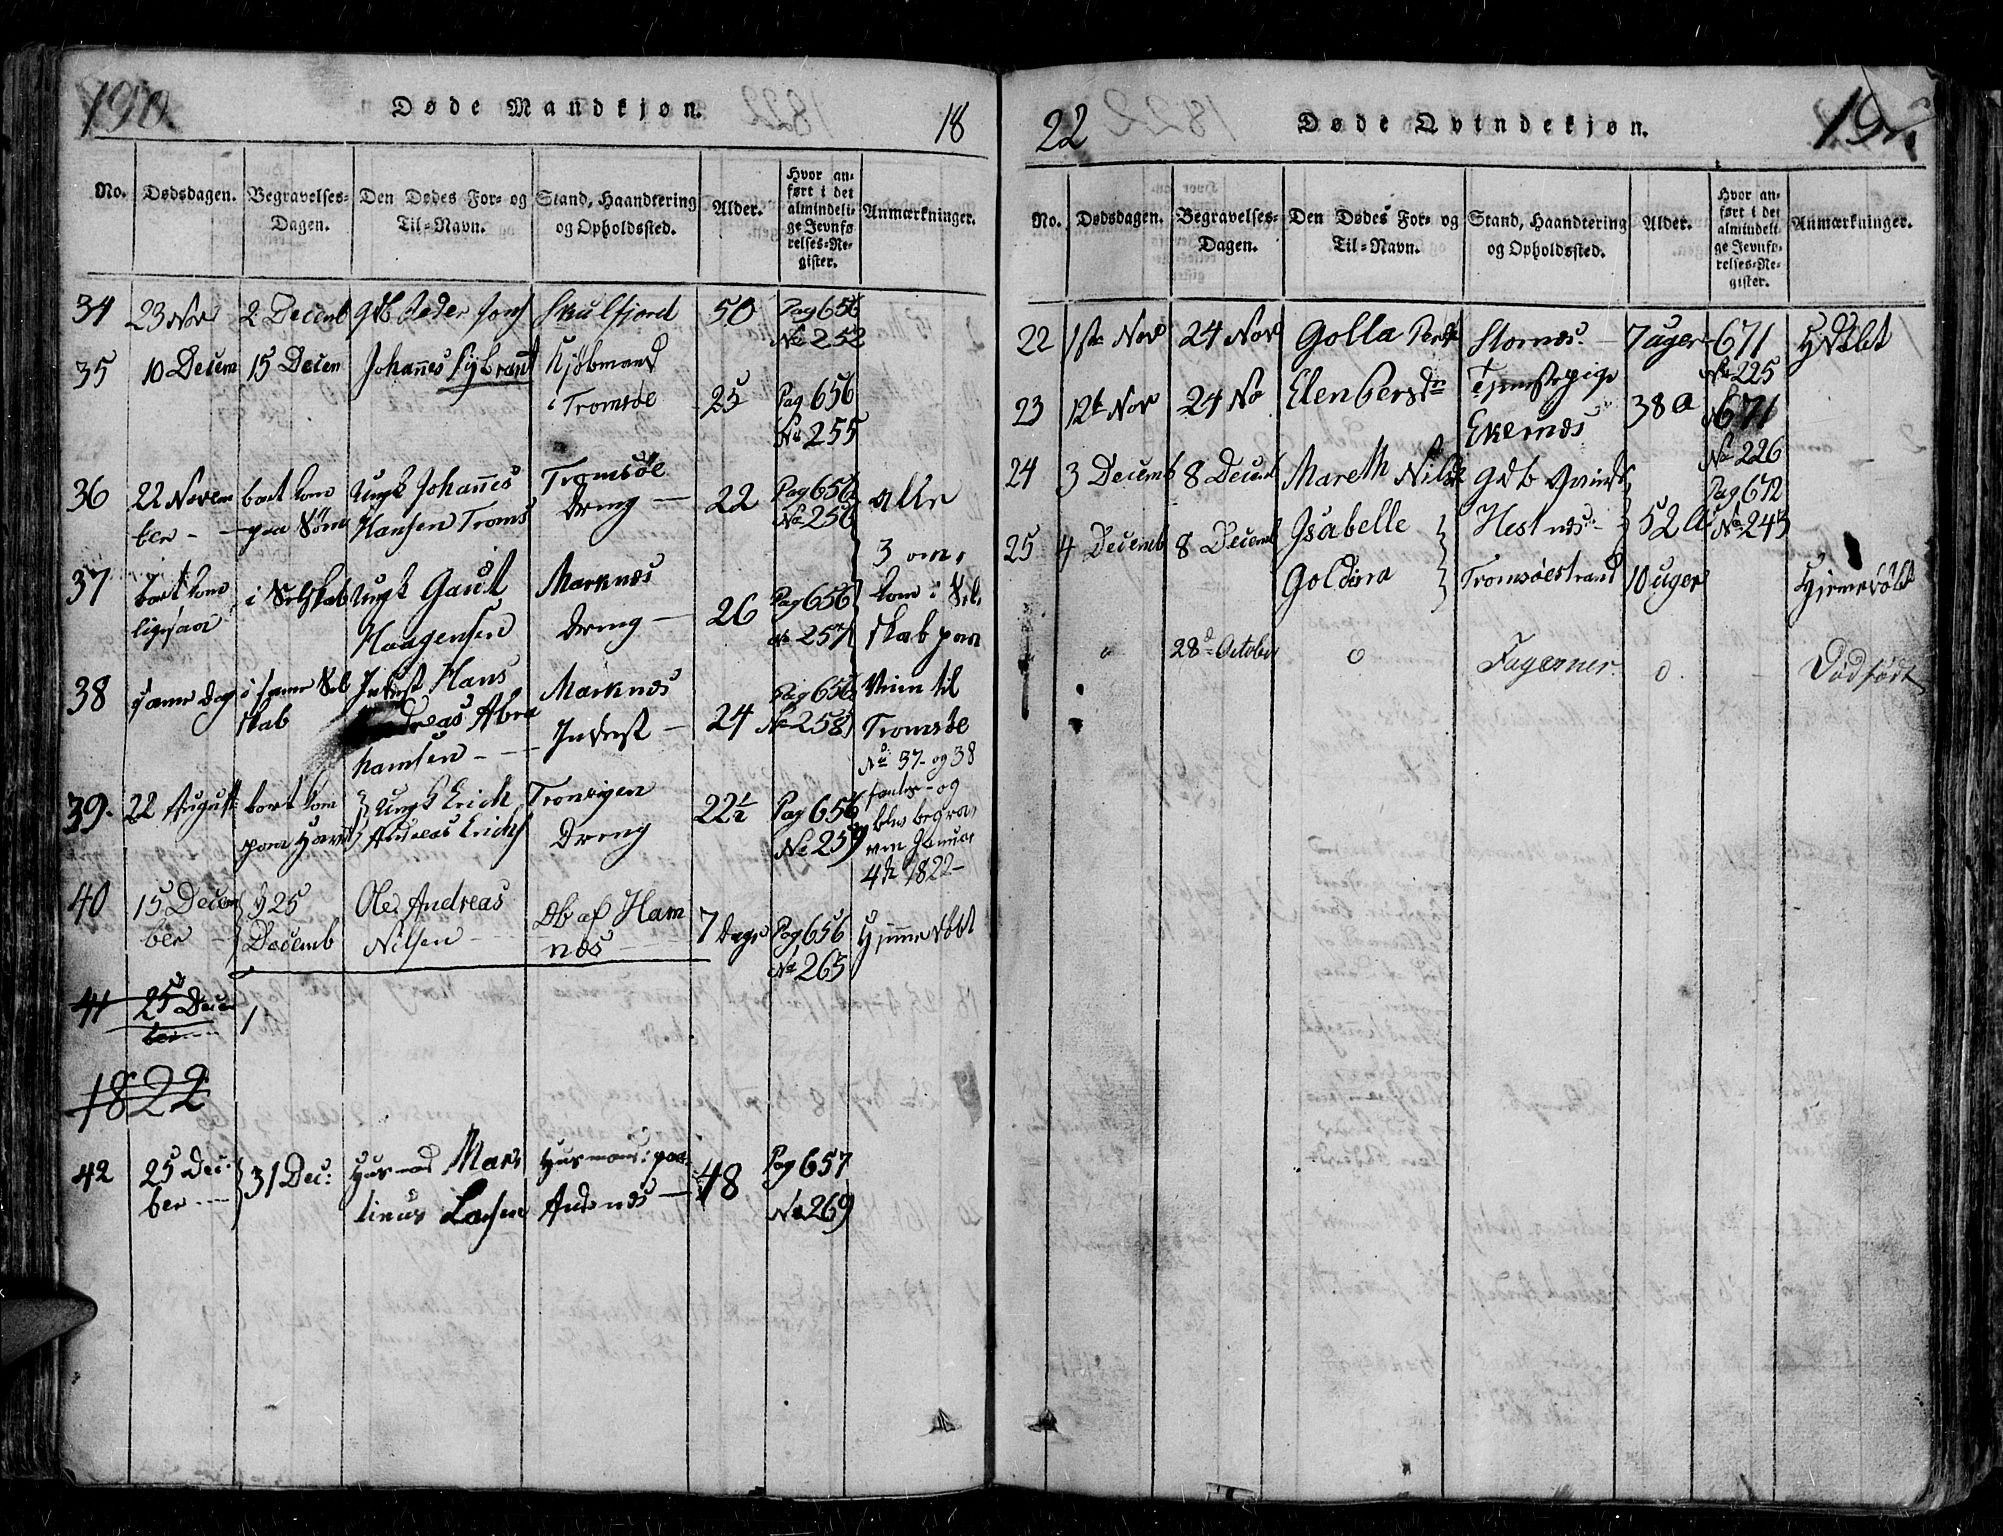 190.
Døde Mandkjøn.
18
No.
Dødsdagen.
Begravelses-
Dagen.
Den Dødes For- og
Til-Navn.
Stand, Haandtering
og Opholdssted.
Alder.
Hvor an-
ført i det
almindeli-
ge Jevnfø-
relses-Re-
gister.
Anmærkninger.
34 23 Nov 2 Decemb Peder Skulsfjord 50 Pag 656
No 252
35 10 Decem 15 Decem Johannes Sybrant Kjøbmand
i Tromsøe 25 Pag 656
No 255
36 22 Novem
ber - bort kom
paa Søen Ungk Johannes
Hansen Troms Tromsöe
Dreng 22 Pag 656
No 256 alle
3 om,
37 bort kom
ligesaa i Selskab Ungk Gaut
Haagensen Marknæs
Dreng 26 Pag 656
No 257 kom i Sel,
skab paa
38 samme Dag i samme Sel
skab Inderst Hans
Andreas Abra
hamsen Marknæs
Inderst 24 Pag 656
No 258 Veien til
Tromsöe
No 37 og 38
fantes og
blev begra,
ven Januar
4de 1822
39. 22 August bort kom
paa Havet Ungk Erich
Andreas Erichs Tronvigen
Dreng 22½ Pag 656
No 259
40 15 Decem
ber - 25
Decemb Ole Andreas
Nilsen Db af Ham
næs 7 Dage Pag 656
No 265 Hjemmedöbt
41 25 Decem
ber
1822
42 25 Dec:
ber 31 Dec: Husmand Mar
tinus Larsen Husmand: paa
Andsnæs 48 Pag 657
No 269
22
Døde Qvindekjøn.
191
No.
Dødsdagen.
Begravelses-
Dagen.
Den Dødes For- og
Til-Navn.
Stand, Haandtering
og Opholdssted.
Alder.
Hvor an-
ført i det
almindeli-
ge Jevnfø-
relses-Re-
gister.
Anmærkninger.
22 1ste Nov 24 Nov Golla Stornæs. 7 uger 671
No 225 Hdöbt
23 12te Nov 24 No Elen Bersdn Tjenstepige
Ekernæs 38 a 671
No 226
24 3 Decemb 8 Decemb Mareth Nilsd Gdb Qvinde
Hestnæs 52 A Pag 672
No 243
25 4 Decemb 8 Decemb Isabelle
Goldina Tromsöestrand 10 uger Hjemedöbt
28d October 0 Fagerner. 0. Dødfødt